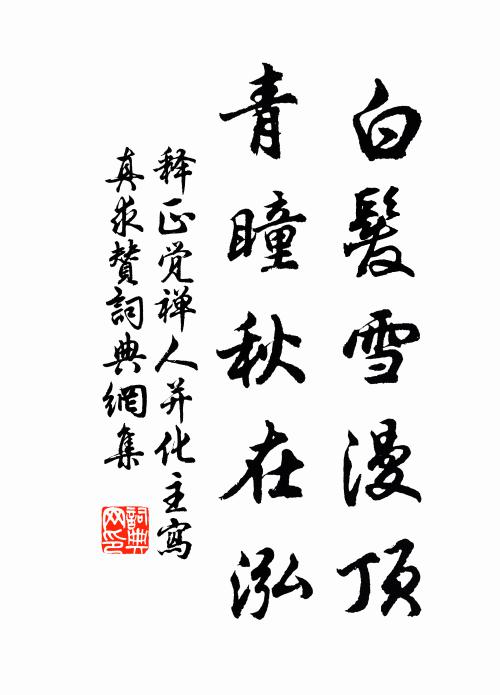 白髮雪漫頂
青瞳秋在泓
释正觉禅人并化主寫
真求贊詞典網集
詞典网印